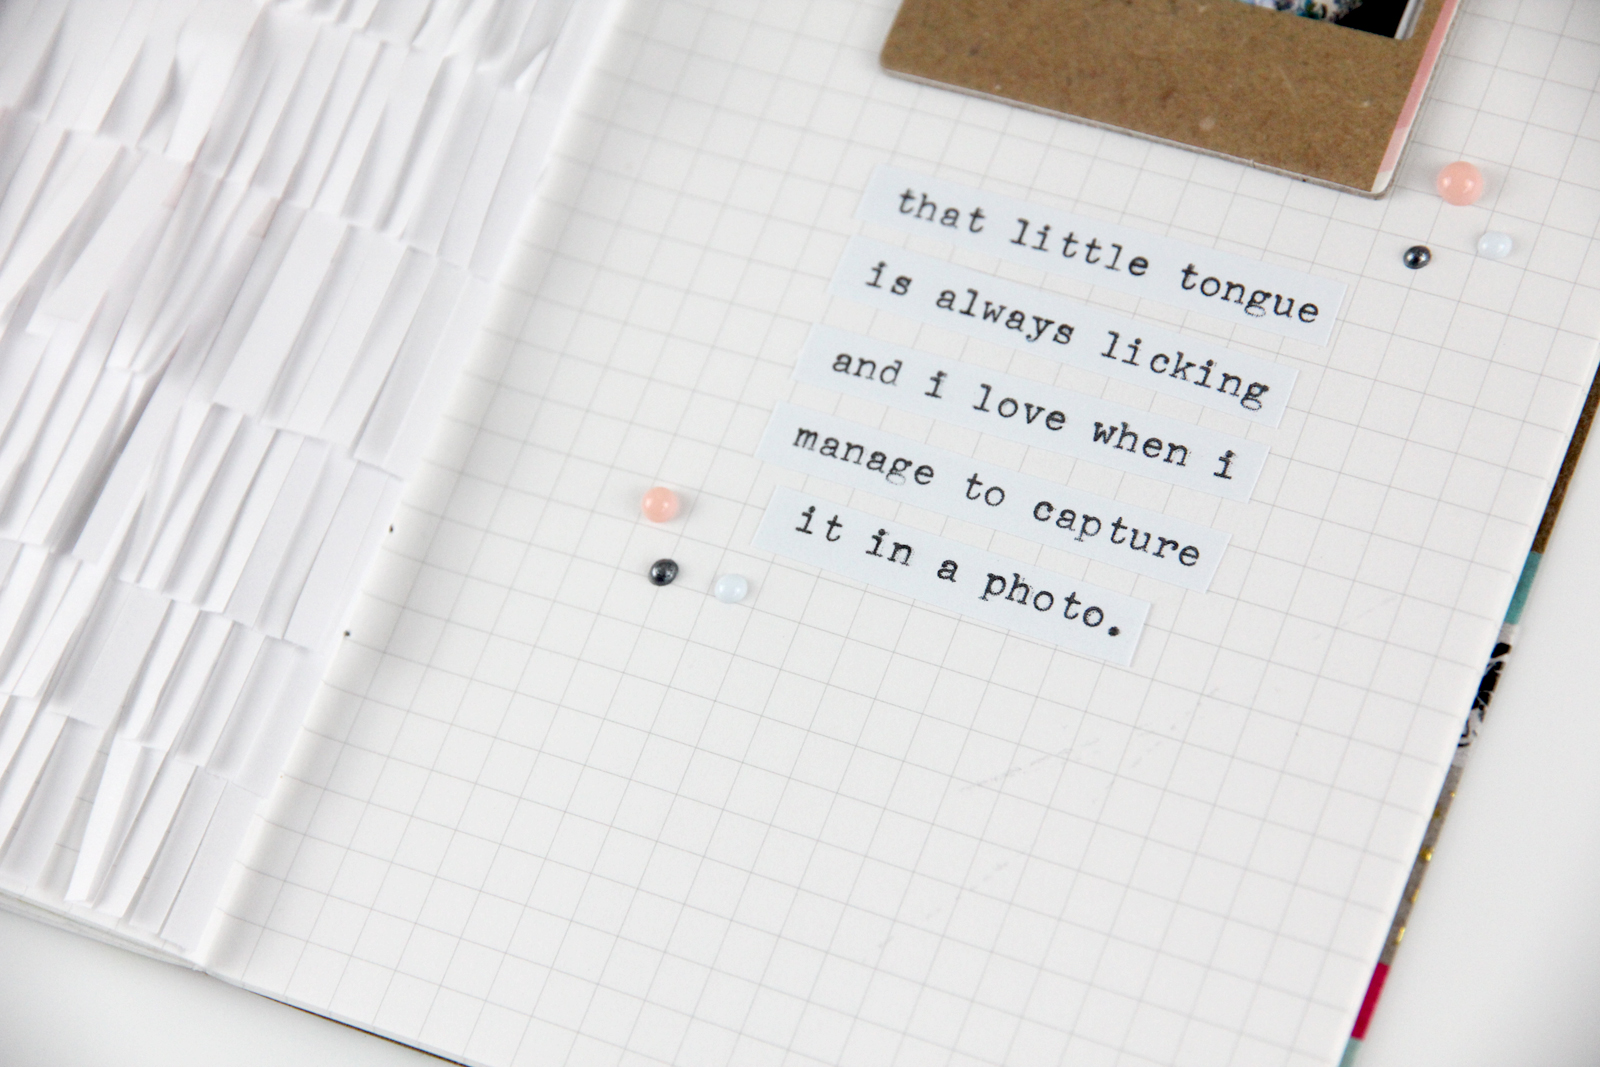 that little tongue
is always licking
and i love when i
manage to capture
it in a photo.